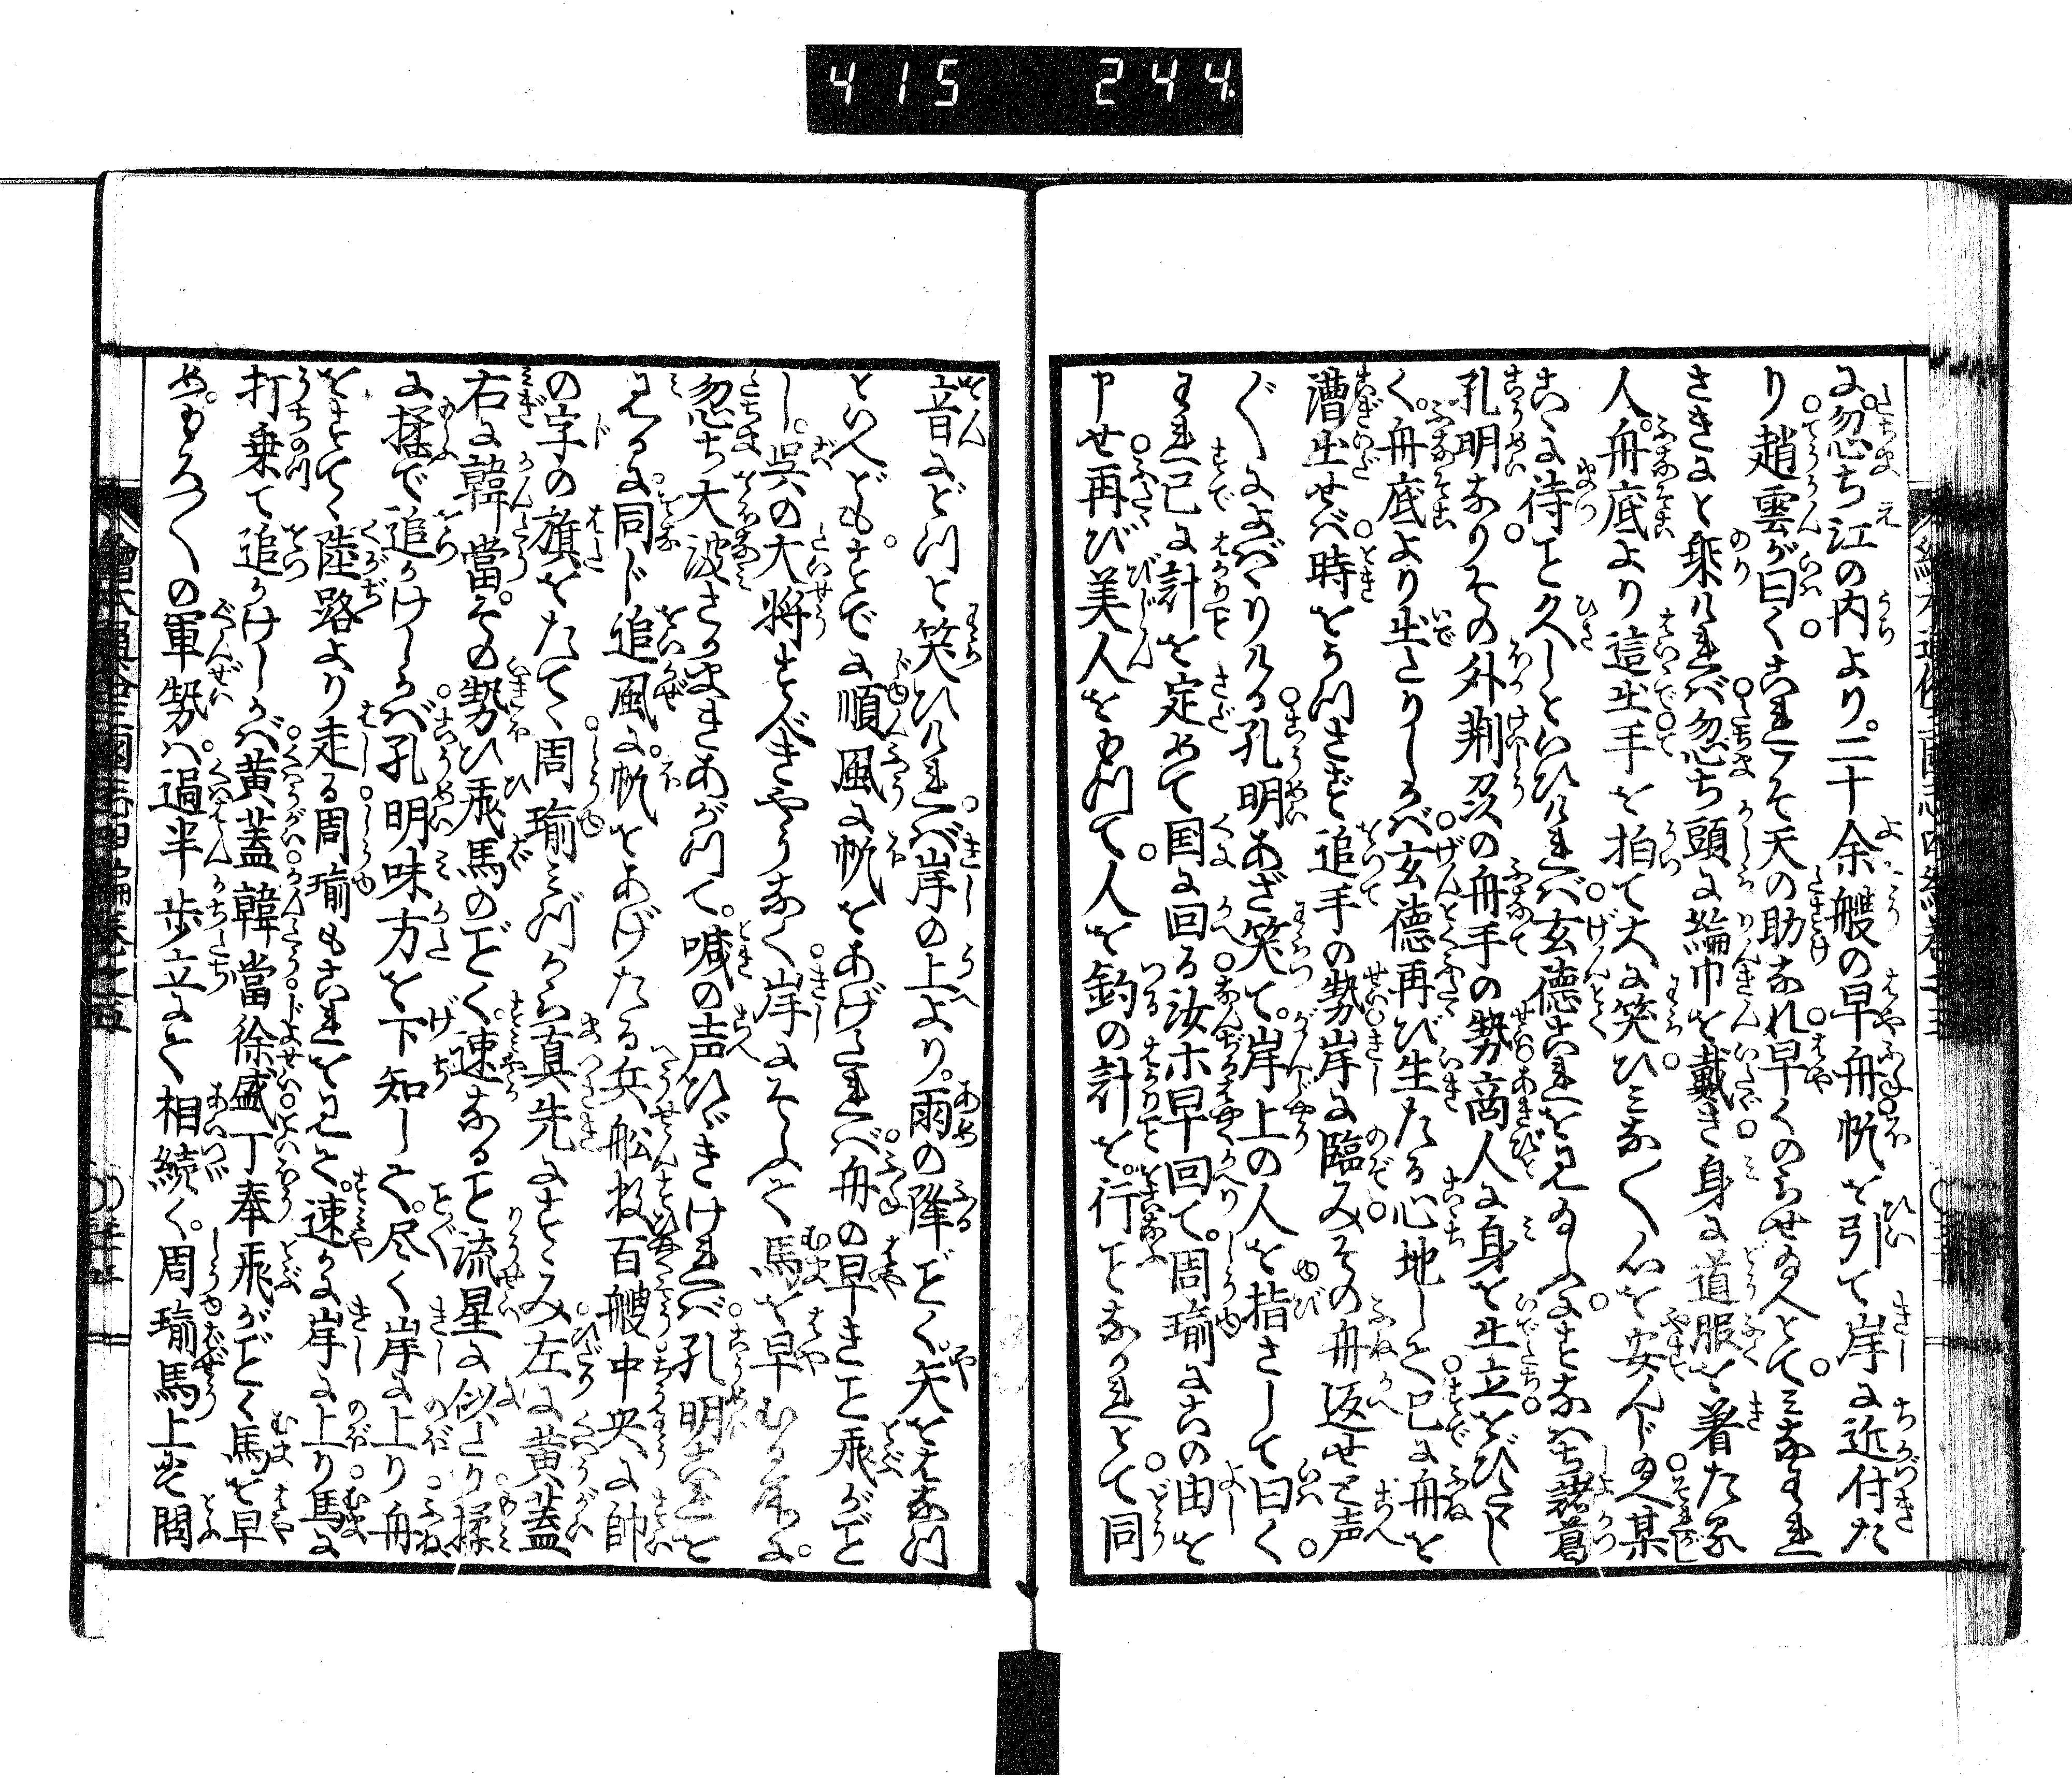 415 244
に。忽ち江の内より。二十余艘の早舟帆を引て岸に近付た
り趙雲が曰くこれこそ天の助なれ早くのらせ給へとてみなわれ
さきにと乗ければ忽ち頭に綸巾を戴き身に道服を着たる
人。舟底より這出手を拍て大に笑ひみな〳〵心を安んじ給へ某
こゝに待こと久しといひければ玄德これを見給ふにすなはち諸葛
孔明なりその外荆州の舟手の勢商人に身を出立をびたゝし
く。舟底より出たりしかば玄德再び生たる心地して已に舟を
漕出せば時をうつさず追手の勢岸に臨みその舟返せと声
〴〵によばゝりける孔明あざ笑て。岸上の人を指さして曰く
われ已に計を定めて国に回る汝ホ早回て。周瑜にこの由を
申せ再び美人をもつて人を釣の計を。行ことなかれとて同
音にどつと笑ひければ岸の上より。雨の降ごとく。矢をはなつ
といへども。すでに順風に帆をあげたれば舟の早きこと飛がごと
し。呉の大将すべきやうなく岸にそふて馬を早むる所に。
忽ち大波さかまきあがつて。喊の声ひゞきければ孔明これを
みるに同じ追風に帆をあげたる兵舩数百艘中央に帥
の字の旗をたて周瑜みづから真先にすゝみ左に黄蓋
右に韓當。その勢ひ飛馬のごとく速なること流星に似たり揉
に揉で追かけしかば孔明味方を下知して。尽く岸に上り舟
をすてゝ陸路より走る周瑜もこれをみて。速かに岸に上り馬に
打乗て追かけしかば黄蓋韓當徐盛丁奉飛がごとく馬を早
め。もろ〳〵の軍勢は。過半歩立にて相続く。周瑜馬上にて問